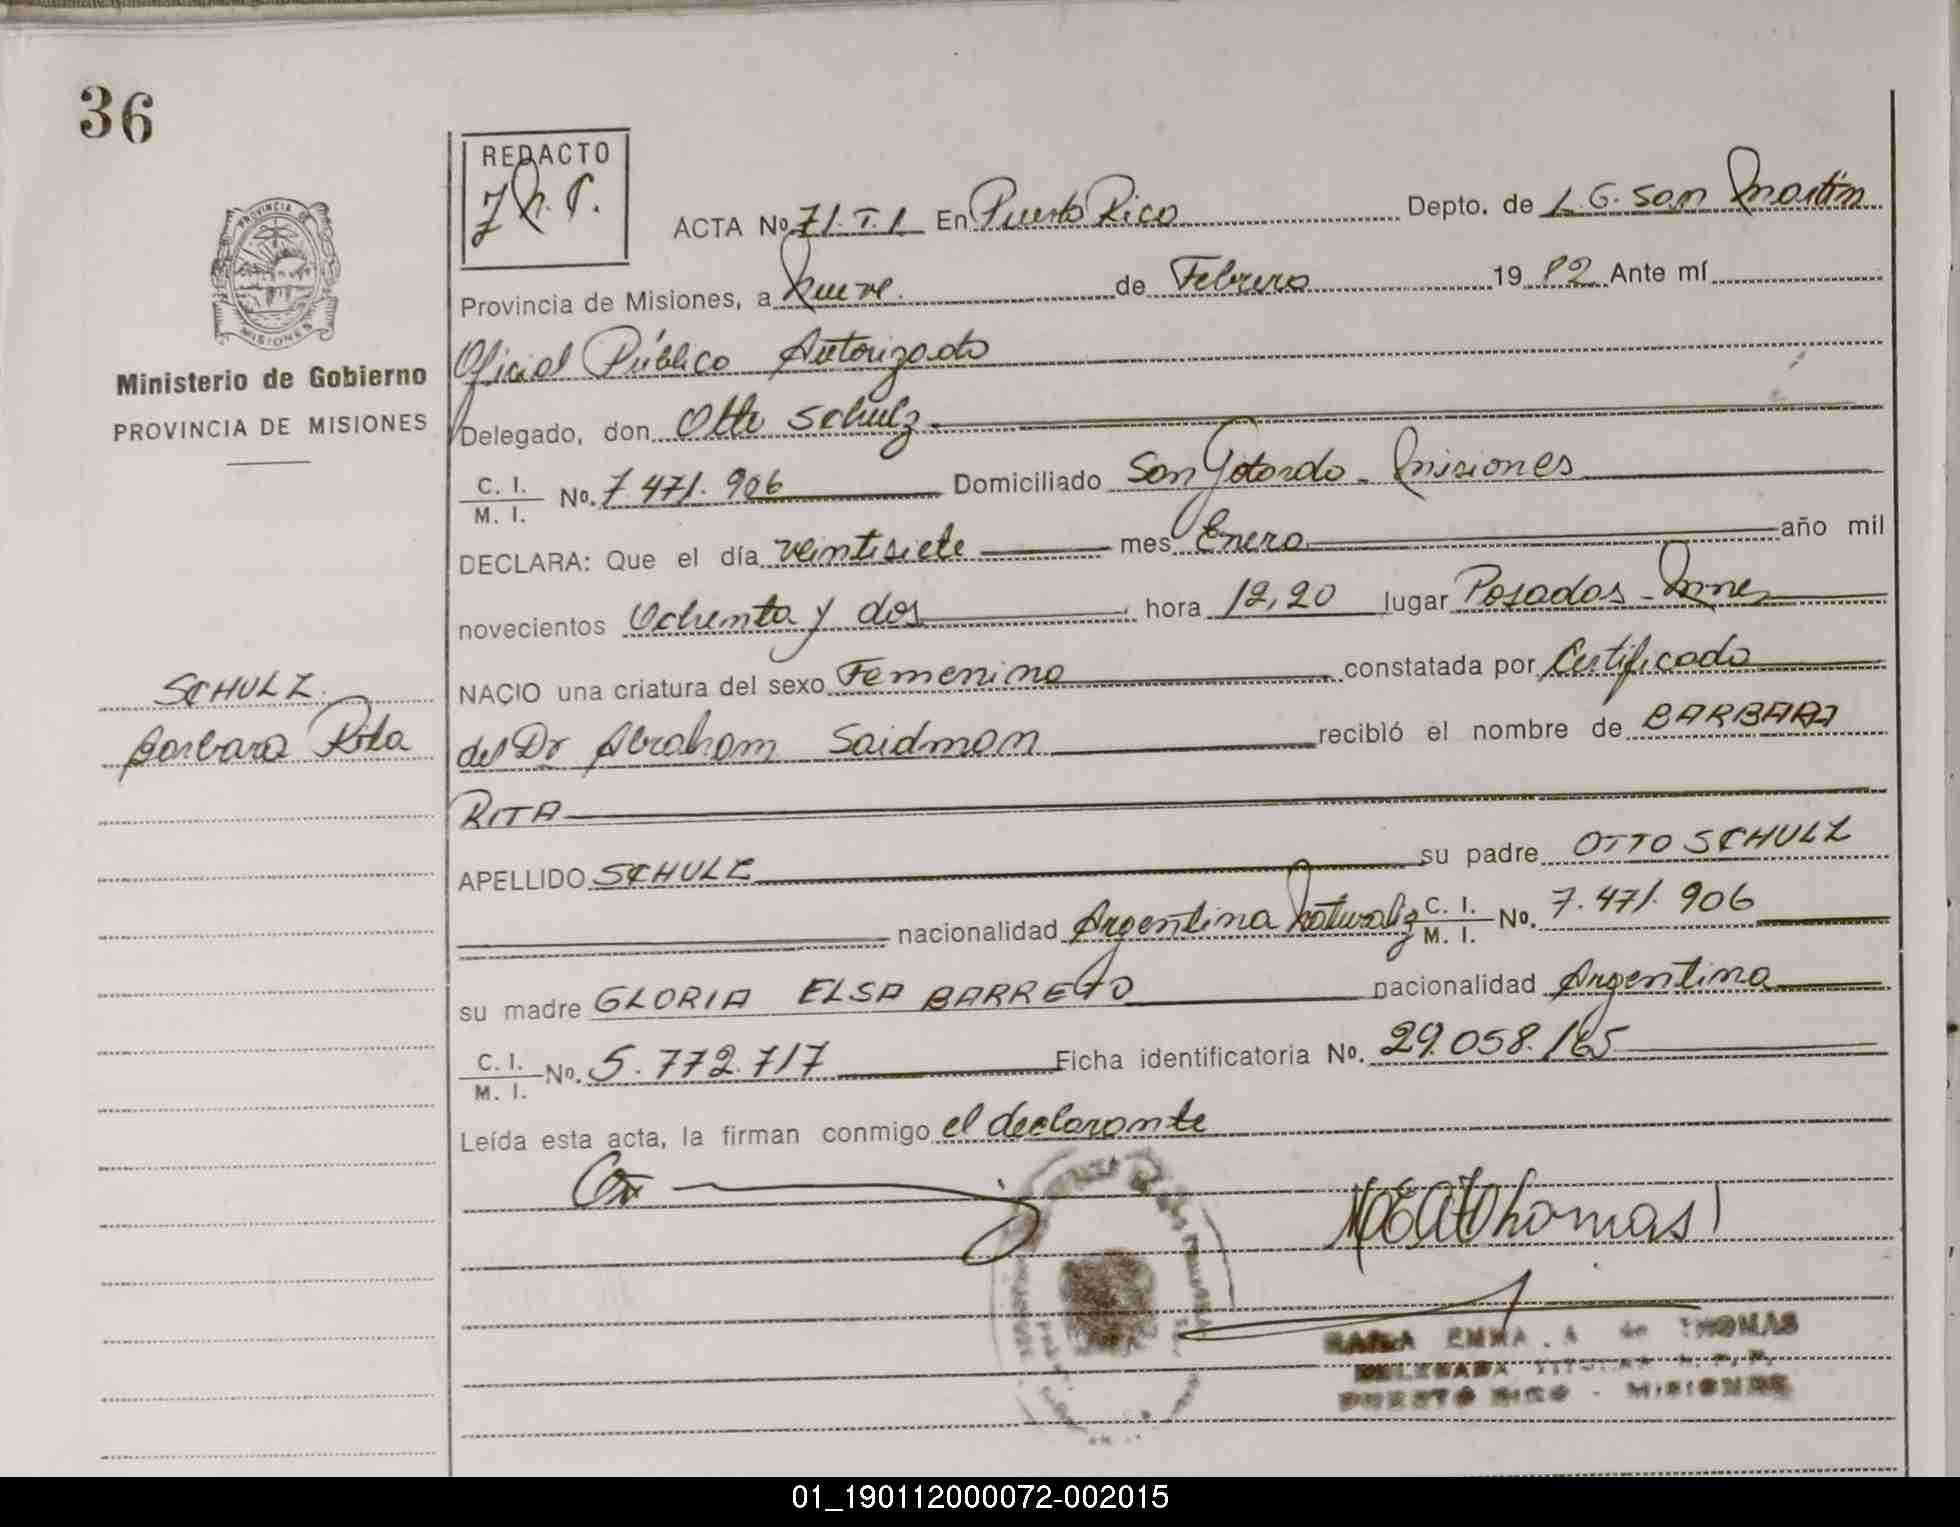 36
REDACTO
ACTA No. 71. T. I. En Puerto Rico Depto. de L. G. San Martín
Provincia de Misiones, a Nueve. de Febrero 1982 Ante mí
PROVINCIA DE
MISIONES
Ministerio de Gobierno
PROVINCIA DE MISIONES
Oficial Público Autorizado
Delegado, don Otto Schulz
C. I.
M. I. No. 7.471.906 Domiciliado San Gotardo - Misiones
DECLARA: Que el día veintisiete mes Enero año mil
novecientos Ochenta y dos hora 12,20 lugar Posadas - Mnes
NACIO una criatura del sexo Femenino constatada por Certificado
SCHULZ.
Barbara Rita
del Dr Abraham Saidman recibió el nombre de BARBARA
RITA
APELLIDO SCHULZ su padre OTTO SCHULZ
nacionalidad Argentina Naturaliz C. I.
M. I. No. 7.471.906
su madre GLORIA ELSA BARRETO nacionalidad Argentina
C. I.
M. I. No. 5.772.717 Ficha identificatoria No. 29.058.165
Leída esta acta, la firman conmigo el declarante
Thomas
EMMA . A de THOMAS
DELEGADA TITULAR
PUERTO RICO - MISIONES
01_190112000072-002015